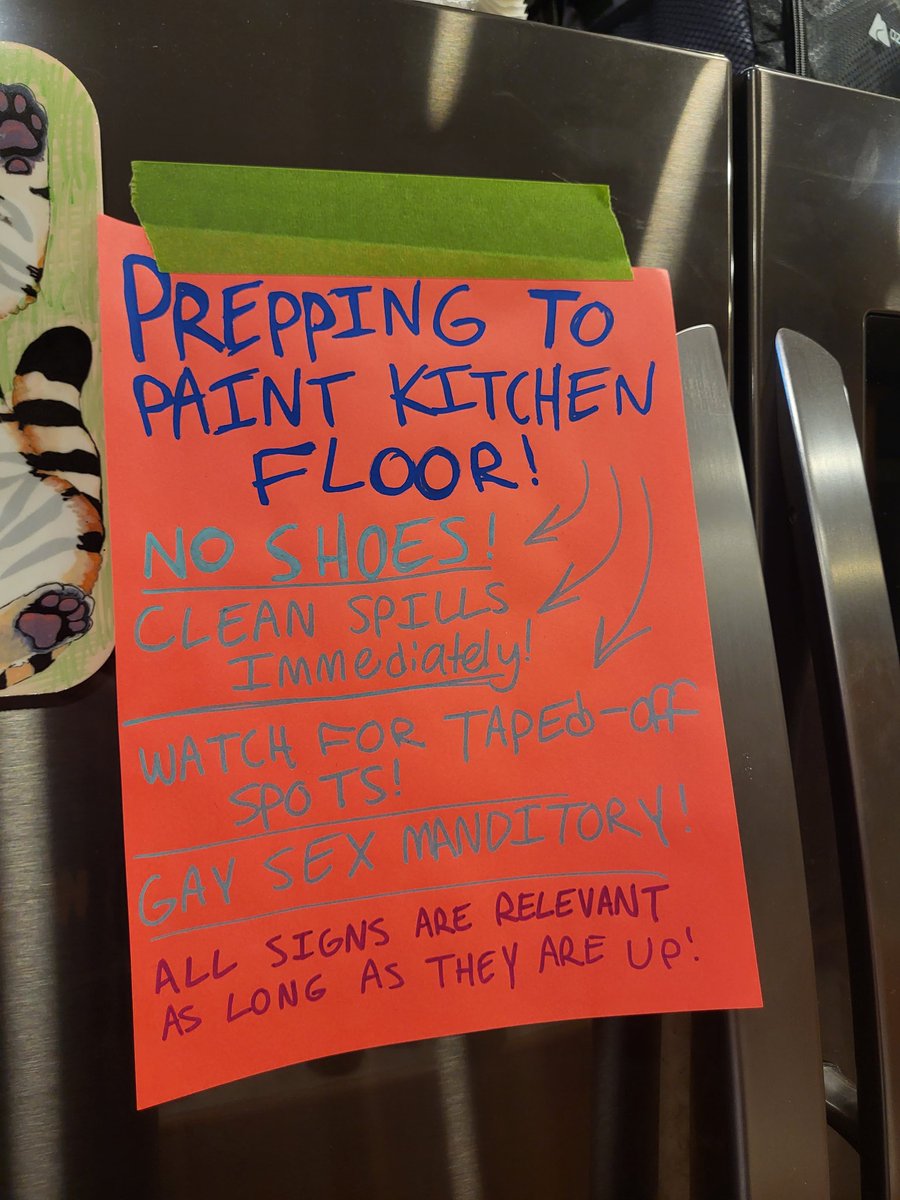 PREPPING TO
PAINT KITCHEN
FLOOR!
NO SHOES!
CLEAN SPILLS
Immediately!
WATCH FOR TAPEd-off
SPOTS!
GAY SEX MANDITORY!
ALL SIGNS ARE RELEVANT
AS LONG AS THEY ARE UP!